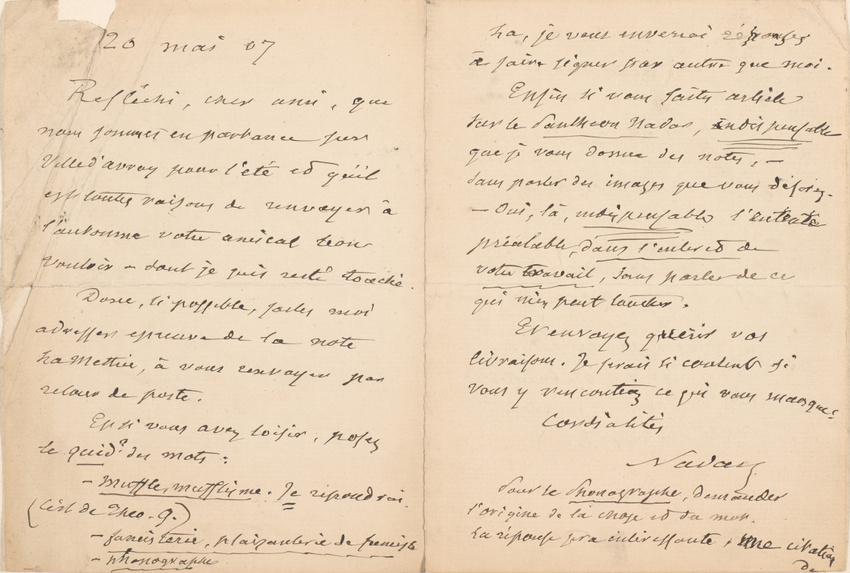 20 mai 07
Réfléchi, cher ami, que
nous sommes en partance pour
Ville d'avray pour l'été et qu'il
est toutes raisons de renvoyer à
l'automne votre amical bon
vouloir – dont je suis resté touché.
Donc, si possible, faites moi
adresser epreuve de la note
La Mettrie, à vous renvoyer par
retour de poste.
Et si vous avez loisir, posez
le quid? des mots :
– Muffle, mufflisme. Je répondrai.
(C'est de Theo. G.)
– fumisterie, plaisanterie de fumiste
– phonographe
La, je vous enverrai réponses
à faire signer par autre que moi.
Enfin si vous faites article
sur le Panthéon Nadar, indispensable
que je vous donne des notes, –
sans parler des images que vous désirez.
– Oui, là, indispensable l'entente
préalable, dans l'intérêt de
votre travail, sans parler de ce
qui m'en peut toucher.
Et envoyez quérir vos
livraisons. Je serais si content si
vous y rencontriez ce qui vous manque!
Cordialités
Nadar
Pour le phonographe, demander
l'origine de la chose et du mot.
La réponse sera intéressante, une citation
de